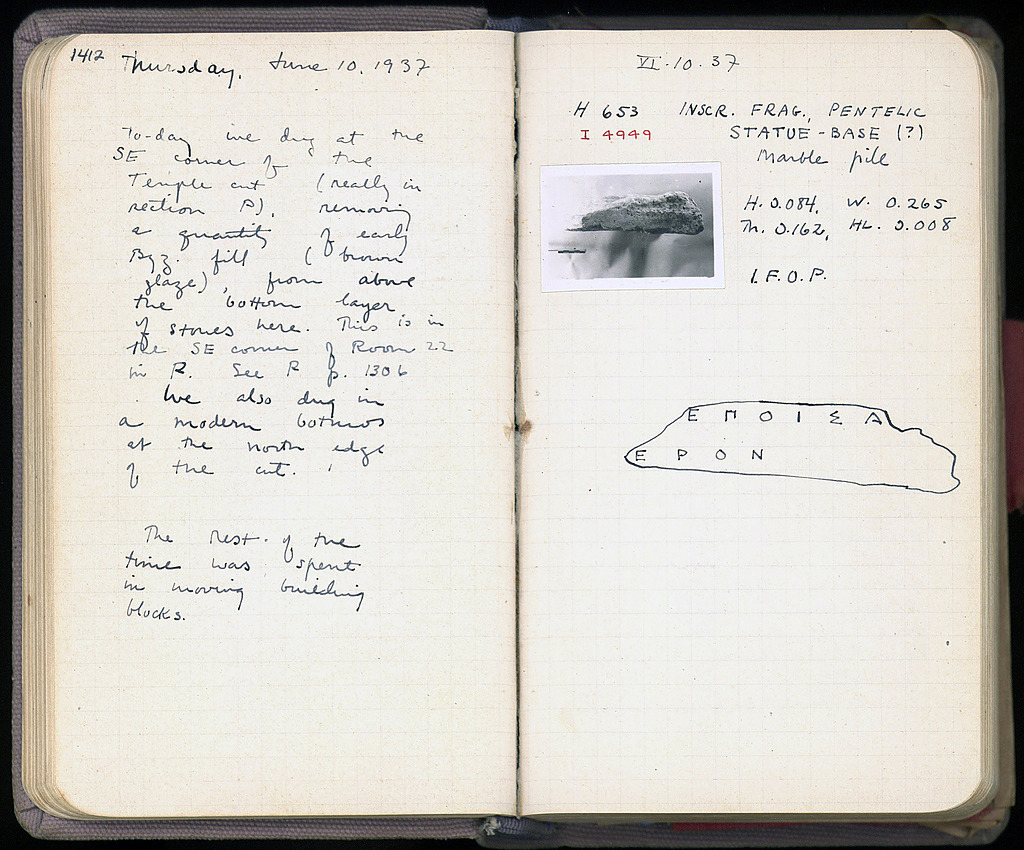 1412
Thursday, June 10, 1937
To-day we dug at the
SE corner of the
Temple cut (really in
section P), removing
a quantity of early
Byz. fill (brown
glaze), from above
the bottom layer
of stones here. This is in
the SE corner of Room 22
in R. See R p. 1306
We also dug in
a modern bothros
at the north edge
of the cut.
The rest of the
time was spent
in moving building
blocks.
VI.10.37
H 653 INSCR. FRAG., PENTELIC
I 4949 STATUE-BASE (?)
Marble pile
H. 0.084, W. 0.265
Th. 0.162, HL. 0.008
I.F.O.P.
Ε Π Ο Ι Σ Α
Ε Ρ Ο Ν